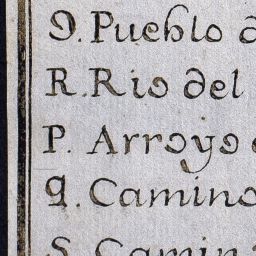 O. Pueblo d
R. Rio del
P. Arroyo
q. Camino
S. Camin